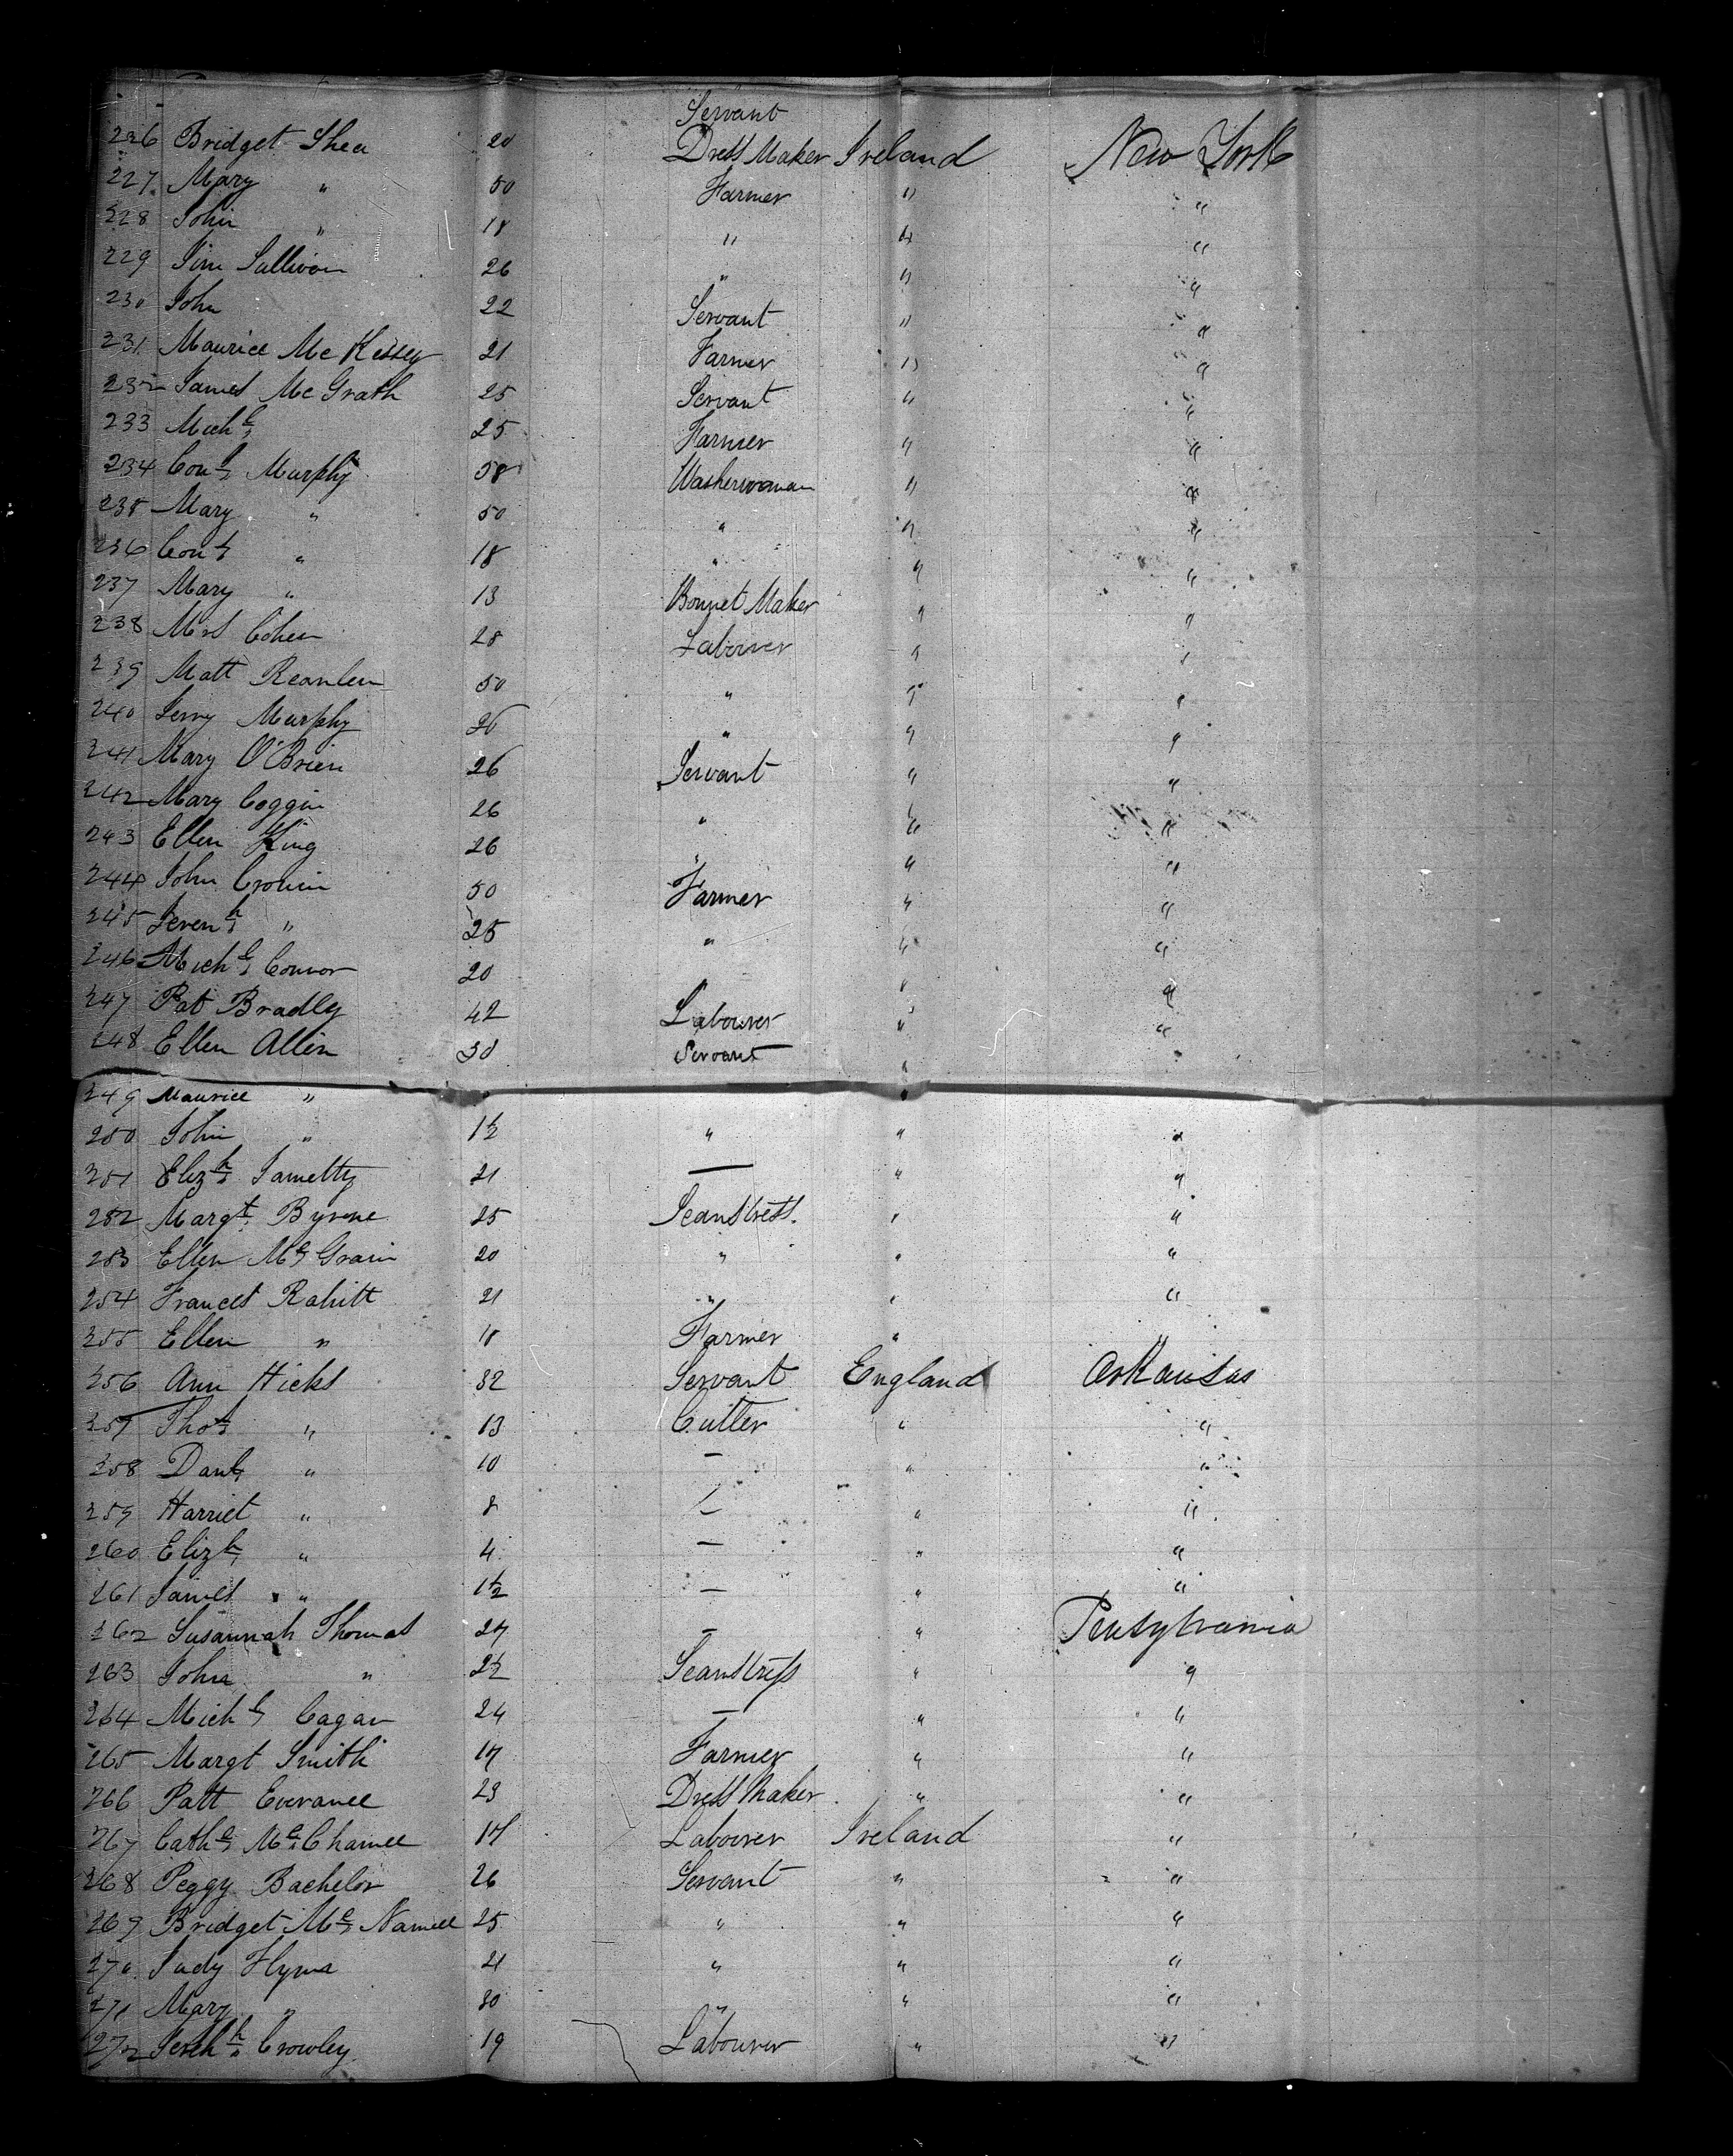 Servant
226 Bridget Shea 20 Dress Maker Ireland New York
227 Mary " 50 Farmer " "
228 John " 18 " " "
229 Jim Sullivan 26 " " "
230 John 22 Servant " "
231 Maurice Mc 21 Farmer " "
232 James Mc Grath 25 Servant " "
233 Michl 25 Farmer " "
234 Cons Murphy 58 Washerwoman " "
235 Mary " 50 " " "
236 Cons " 18 " " "
237 Mary " 13 Bonnet Maker " "
238 Mrs Cohen 28 Labourer " "
239 Matt 50 " " "
240 Jerry Murphy 26 " " "
241 Mary O'Brien 26 Servant " "
242 Mary Coggin 26 " " "
243 Ellen King 26 " " "
244 John Cronin 50 Farmer " "
245 Jeremh " 25 " " "
246 Michl Connor 20 " "
247 Pat Bradly 42 Labourer " "
248 Ellen Allen 30 Servant "
249 Maurice " "
250 John " 1½ " " "
251 Elizh 21 — " "
252 Margt Byrne 25 Seamstress. " "
253 Ellen Mc Grain 20 " " "
254 Frances Rahitt 21 " " "
255 Ellen " 18 Farmer "
256 Ann Hicks 32 Servant England Arkansas
257 Thos " 13 Cutter " "
258 Danl " 10 — " "
259 Harriet " 8 — " "
260 Elizh " 4 — " "
261 James " 1½ — " "
262 Susannah Thomas 27 — " Pensylvania
263 John " 2½ Seamstress " "
264 Michl Cagan 24 — " "
265 Margt Smith 17 Farmer " "
266 Patt 23 Dress Maker " "
267 Cathe 17 Labourer Ireland "
268 Peggy Bachelor 26 Servant " "
269 Bridget Mc 25 " " "
270 Judy 21 " " "
271 Mary " 30 " " "
272 Crowley 19 Labourer " "